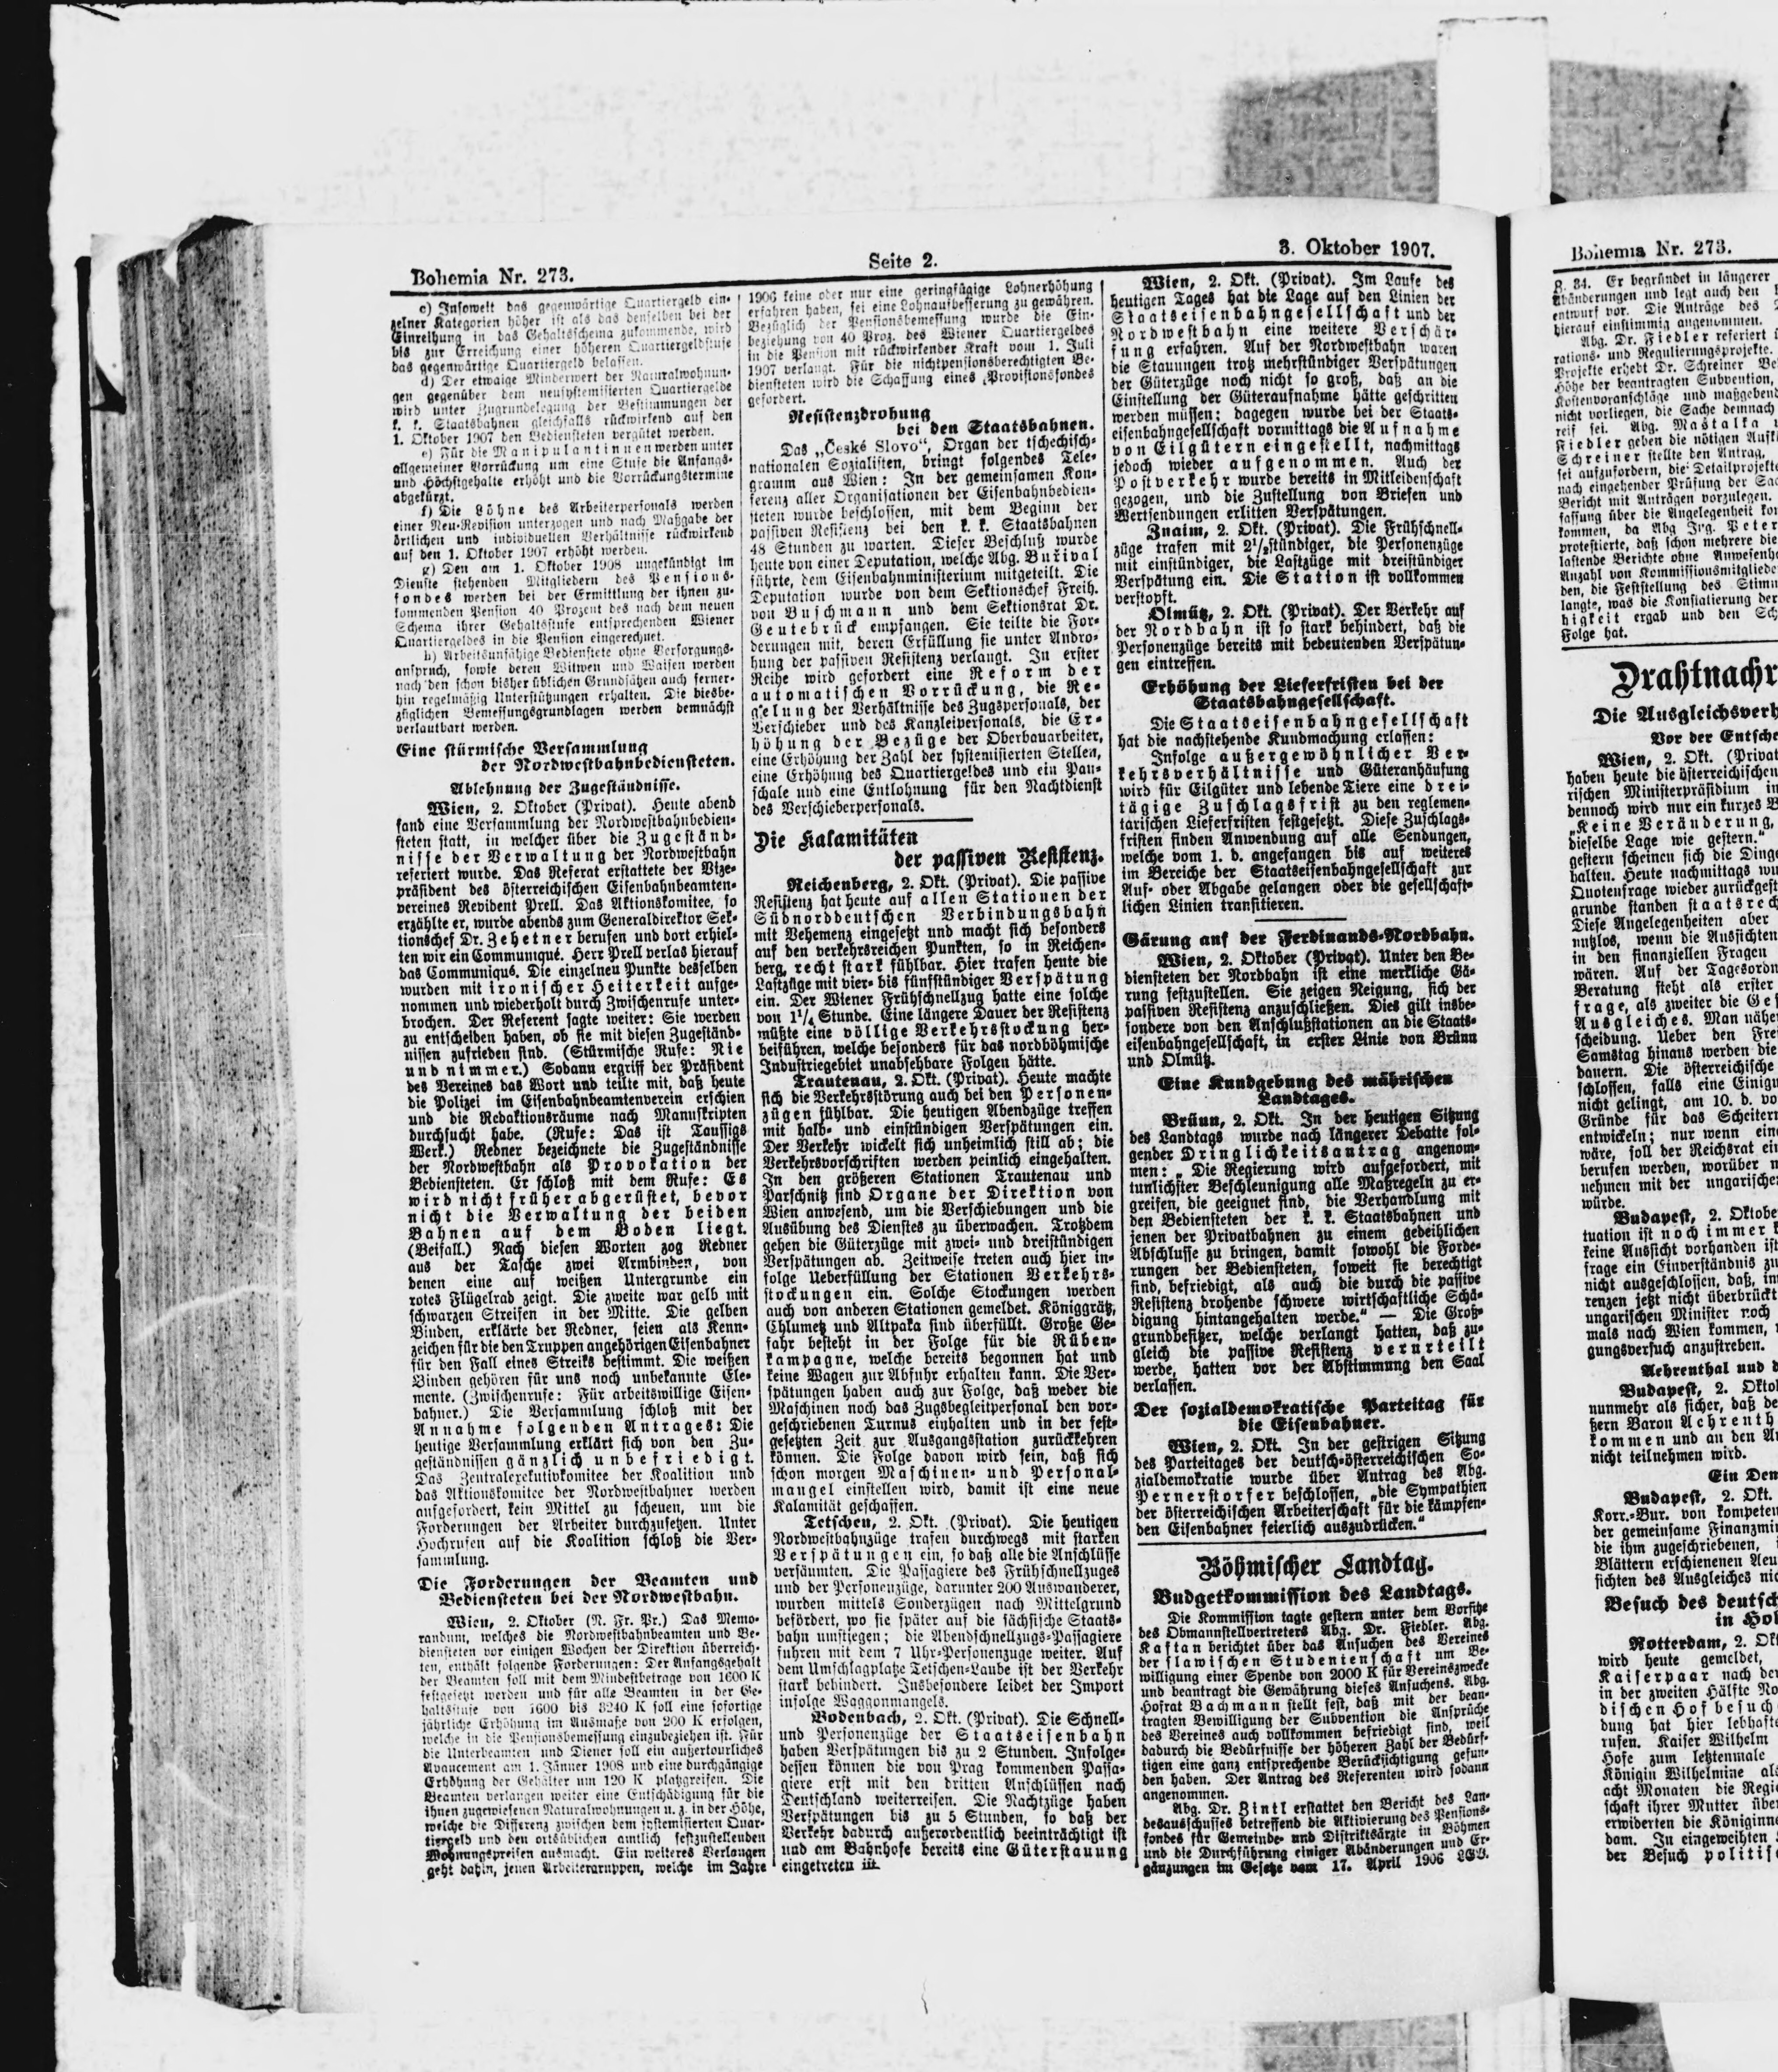 Bohemia Nr. 273.
Seite 2.
3. Oktober 1907.
c) Insoweit das gegenwärtige Quartiergeld ein-
zelner Kategorien höher ist als das denselben bei der
Einreihung in das Gehaltsschema zukommende, wird
bis zur Erreichung einer höheren Quartiergeldstufe
das gegenwärtige Quartiergeld belassen.
d) Der etwaige Minderwert der Naturalwohnun-
gen gegenüber dem neusystemisierten Quartiergelde
wird unter Zugrundelegung der Bestimmungen der
k. k. Staatsbahnen gleichfalls rückwirkend auf den
1. Oktober 1907 den Bediensteten vergütet werden.
e) Für die Manipulantinnen werden unter
allgemeiner Vorrückung um eine Stufe die Anfangs-
und Höchstgehalte erhöht und die Vorrückungstermine
abgekürzt.
f) Die Löhne des Arbeiterpersonals werden
einer Neu-Revision unterzogen und nach Maßgabe der
örtlichen und individuellen Verhältnisse rückwirkend
auf den 1. Oktober 1907 erhöht werden.
g) Den am 1. Oktober 1908 ungekündigt im
Dienste stehenden Mitgliedern des Pensions-
fondes werden bei der Ermittlung der ihnen zu-
kommenden Pension 40 Prozent des nach dem neuen
Schema ihrer Gehaltsstufe entsprechenden Wiener
Quartiergeldes in die Pension eingerechnet.
h) Arbeitsunfähige Bedienstete ohne Versorgungs-
anspruch, sowie deren Witwen und Waisen werden
nach den schon bisher üblichen Grundsätzen auch ferner-
hin regelmäßig Unterstützungen erhalten. Die diesbe-
züglichen Bemessungsgrundlagen werden demnächst
verlautbart werden.
Eine stürmische Versammlung
der Nordwestbahnbediensteten.
Ablehnung der Zugeständnisse.
Wien, 2. Oktober (Privat). Heute abend
fand eine Versammlung der Nordwestbahnbedien-
steten statt, in welcher über die Zugeständ-
nisse der Verwaltung der Nordwestbahn
referiert wurde. Das Referat erstattete der Vize-
präsident des österreichischen Eisenbahnbeamten-
vereines Revident Prell. Das Aktionskomitee, so
erzählte er, wurde abends zum Generaldirektor Sek-
tionschef Dr. Zehetner berufen und dort erhiel-
ten wir ein Communiqué. Herr Prell verlas hierauf
das Communiqué. Die einzelnen Punkte desselben
wurden mit ironischer Heiterkeit aufge-
nommen und wiederholt durch Zwischenrufe unter-
brochen. Der Referent sagte weiter: Sie werden
zu entscheiden haben, ob sie mit diesen Zugeständ-
nissen zufrieden sind. (Stürmische Rufe: Nie
und nimmer.) Sodann ergriff der Präsident
des Vereines das Wort und teilte mit, daß heute
die Polizei im Eisenbahnbeamtenverein erschien
und die Redaktionsräume nach Manuskripten
durchsucht habe. (Rufe: Das ist Taussigs
Werk.) Redner bezeichnete die Zugeständnisse
der Nordwestbahn als Provokation der
Bediensteten. Er schloß mit dem Rufe: Es
wird nicht früher abgerüstet, bevor
nicht die Verwaltung der beiden
Bahnen auf dem Boden liegt.
(Beifall.) Nach diesen Worten zog Redner
aus der Tasche zwei Armbinden, von
denen eine auf weißen Untergrunde ein
rotes Flügelrad zeigt. Die zweite war gelb mit
schwarzen Streifen in der Mitte. Die gelben
Binden, erklärte der Redner, seien als Kenn-
zeichen für die den Truppen angehörigen Eisenbahner
für den Fall eines Streiks bestimmt. Die weißen
Binden gehören für uns noch unbekannte Ele-
mente. (Zwischenrufe: Für arbeitswillige Eisen-
bahner.) Die Versammlung schloß mit der
Annahme folgenden Antrages: Die
heutige Versammlung erklärt sich von den Zu-
geständnissen gänzlich unbefriedigt.
Das Zentralexekutivkomitee der Koalition und
das Aktionskomitee der Nordwestbahner werden
aufgefordert, kein Mittel zu scheuen, um die
Forderungen der Arbeiter durchzusetzen. Unter
Hochrufen auf die Koalition schloß die Ver-
sammlung.
Die Forderungen der Beamten und
Bediensteten bei der Nordwestbahn.
Wien, 2. Oktober (N. Fr. Pr.) Das Memo-
randum, welches die Nordwestbahnbeamten und Be-
diensteten vor einigen Wochen der Direktion überreich-
ten, enthält folgende Forderungen: Der Anfangsgehalt
der Beamten soll mit dem Mindestbetrage von 1600 K
festgesetzt werden und für alle Beamten in der Ge-
haltsstufe von 1600 bis 3240 K soll eine sofortige
jährliche Erhöhung im Ausmaße von 200 K erfolgen,
welche in die Pensionsbemessung einzubeziehen ist. Für
die Unterbeamten und Diener soll ein außertourliches
Avancement am 1. Jänner 1908 und eine durchgängige
Erhöhung der Gehälter um 120 K platzgreifen. Die
Beamten verlangen weiter eine Entschädigung für die
ihnen zugewiesenen Naturalwohnungen u. z. in der Höhe,
welche die Differenz zwischen dem systemisierten Quar-
tiergeld und den ortsüblichen amtlich festzustellenden
Wohnungspreisen ausmacht. Ein weiteres Verlangen
geht dahin, jenen Arbeitergruppen, welche im Jahre
1906 keine oder nur eine geringfügige Lohnerhöhung
erfahren haben, sei eine Lohnaufbesserung zu gewähren.
Bezüglich der Pensionsbemessung wurde die Ein-
beziehung von 40 Proz. des Wiener Quartiergeldes
in die Pension mit rückwirkender Kraft vom 1. Juli
1907 verlangt. Für die nichtpensionsberechtigten Be-
diensteten wird die Schaffung eines Provisionsfondes
gefordert.
Resistenzdrohung
bei den Staatsbahnen.
Das „České Slovo“, Organ der tschechisch-
nationalen Sozialisten, bringt folgendes Tele-
gramm aus Wien: In der gemeinsamen Kon-
ferenz aller Organisationen der Eisenbahnbedien-
steten wurde beschlossen, mit dem Beginn der
passiven Resistenz bei den k. k. Staatsbahnen
48 Stunden zu warten. Dieser Beschluß wurde
heute von einer Deputation, welche Abg. Buřival
führte, dem Eisenbahnministerium mitgeteilt. Die
Deputation wurde von dem Sektionschef Freih.
von Buschmann und dem Sektionsrat Dr.
Geutebrück empfangen. Sie teilte die For-
derungen mit, deren Erfüllung sie unter Andro-
hung der passiven Resistenz verlangt. In erster
Reihe wird gefordert eine Reform der
automatischen Vorrückung, die Re-
gelung der Verhältnisse des Zugspersonals, der
Verschieber und des Kanzleipersonals, die Er-
höhung der Bezüge der Oberbauarbeiter,
eine Erhöhung der Zahl der systemisierten Stellen,
eine Erhöhung des Quartiergeldes und ein Pau-
schale und eine Entlohnung für den Nachtdienst
des Verschieberpersonals.
Die Kalamitäten
der passiven Resistenz.
Reichenberg, 2. Okt. (Privat). Die passive
Resistenz hat heute auf allen Stationen der
Südnorddeutschen Verbindungsbahn
mit Vehemenz eingesetzt und macht sich besonders
auf den verkehrsreichen Punkten, so in Reichen-
berg, recht stark fühlbar. Hier trafen heute die
Lastzüge mit vier- bis fünfstündiger Verspätung
ein. Der Wiener Frühschnellzug hatte eine solche
von 1¼ Stunde. Eine längere Dauer der Resistenz
müßte eine völlige Verkehrsstockung her-
beiführen, welche besonders für das nordböhmische
Industriegebiet unabsehbare Folgen hätte.
Trautenau, 2. Okt. (Privat). Heute machte
sich die Verkehrsstörung auch bei den Personen-
zügen fühlbar. Die heutigen Abendzüge treffen
mit halb- und einstündigen Verspätungen ein.
Der Verkehr wickelt sich unheimlich still ab; die
Verkehrsvorschriften werden peinlich eingehalten.
In den größeren Stationen Trautenau und
Parschnitz sind Organe der Direktion von
Wien anwesend, um die Verschiebungen und die
Ausübung des Dienstes zu überwachen. Trotzdem
gehen die Güterzüge mit zwei- und dreistündigen
Verspätungen ab. Zeitweise treten auch hier in-
folge Ueberfüllung der Stationen Verkehrs-
stockungen ein. Solche Stockungen werden
auch von anderen Stationen gemeldet. Königgrätz,
Chlumetz und Altpaka sind überfüllt. Große Ge-
fahr besteht in der Folge für die Rüben-
kampagne, welche bereits begonnen hat und
keine Wagen zur Abfuhr erhalten kann. Die Ver-
spätungen haben auch zur Folge, daß weder die
Maschinen noch das Zugsbegleitpersonal den vor-
geschriebenen Turnus einhalten und in der fest-
gesetzten Zeit zur Ausgangsstation zurückkehren
können. Die Folge davon wird sein, daß sich
schon morgen Maschinen- und Personal-
mangel einstellen wird, damit ist eine neue
Kalamität geschaffen.
Tetschen, 2. Okt. (Privat). Die heutigen
Nordwestbahnzüge trafen durchwegs mit starken
Verspätungen ein, so daß alle die Anschlüsse
versäumten. Die Passagiere des Frühschnellzuges
und der Personenzüge, darunter 200 Auswanderer,
wurden mittels Sonderzügen nach Mittelgrund
befördert, wo sie später auf die sächsische Staats-
bahn umstiegen; die Abendschnellzugs-Passagiere
fuhren mit dem 7 Uhr-Personenzuge weiter. Auf
dem Umschlagplatze Tetschen-Laube ist der Verkehr
stark behindert. Insbesondere leidet der Import
infolge Waggonmangels.
Bodenbach, 2. Okt. (Privat). Die Schnell-
und Personenzüge der Staatseisenbahn
haben Verspätungen bis zu 2 Stunden. Infolge-
dessen können die von Prag kommenden Passa-
giere erst mit den dritten Anschlüssen nach
Deutschland weiterreisen. Die Nachtzüge haben
Verspätungen bis zu 5 Stunden, so daß der
Verkehr dadurch außerordentlich beeinträchtigt ist
und am Bahnhofe bereits eine Güterstauung
eingetreten ist.
Wien, 2. Okt. (Privat). Im Laufe des
heutigen Tages hat die Lage auf den Linien der
Staatseisenbahngesellschaft und der
Nordwestbahn eine weitere Verschär-
fung erfahren. Auf der Nordwestbahn waren
die Stauungen trotz mehrstündiger Verspätungen
der Güterzüge noch nicht so groß, daß an die
Einstellung der Güteraufnahme hätte geschritten
werden müssen; dagegen wurde bei der Staats-
eisenbahngesellschaft vormittags die Aufnahme
von Eilgütern eingestellt, nachmittags
jedoch wieder aufgenommen. Auch der
Postverkehr wurde bereits in Mitleidenschaft
gezogen, und die Zustellung von Briefen und
Wertsendungen erlitten Verspätungen.
Znaim, 2. Okt. (Privat). Die Frühschnell-
züge trafen mit 2½stündiger, die Personenzüge
mit einstündiger, die Lastzüge mit dreistündiger
Verspätung ein. Die Station ist vollkommen
verstopft.
Olmütz, 2. Okt. (Privat). Der Verkehr auf
der Nordbahn ist so stark behindert, daß die
Personenzüge bereits mit bedeutenden Verspätun-
gen eintreffen.
Erhöhung der Lieferfristen bei der
Staatsbahngesellschaft.
Die Staatseisenbahngesellschaft
hat die nachstehende Kundmachung erlassen:
Infolge außergewöhnlicher Ver-
kehrsverhältnisse und Güteranhäufung
wird für Eilgüter und lebende Tiere eine drei-
tägige Zuschlagsfrist zu den reglemen-
tarischen Lieferfristen festgesetzt. Diese Zuschlags-
fristen finden Anwendung auf alle Sendungen,
welche vom 1. d. angefangen bis auf weiteres
im Bereiche der Staatseisenbahngesellschaft zur
Auf- oder Abgabe gelangen oder die gesellschaft-
lichen Linien transitieren.
Gärung auf der Ferdinands-Nordbahn.
Wien, 2. Oktober (Privat). Unter den Be-
diensteten der Nordbahn ist eine merkliche Gä-
rung festzustellen. Sie zeigen Neigung, sich der
passiven Resistenz anzuschließen. Dies gilt insbe-
sondere von den Anschlußstationen an die Staats-
eisenbahngesellschaft, in erster Linie von Brünn
und Olmütz.
Eine Kundgebung des mährischen
Landtages.
Brünn, 2. Okt. In der heutigen Sitzung
des Landtags wurde nach längerer Debatte fol-
gender Dringlichkeitsantrag angenom-
men: „Die Regierung wird aufgefordert, mit
tunlichster Beschleunigung alle Maßregeln zu er-
greifen, die geeignet sind, die Verhandlung mit
den Bediensteten der k. k. Staatsbahnen und
jenen der Privatbahnen zu einem gedeihlichen
Abschlusse zu bringen, damit sowohl die Forde-
rungen der Bediensteten, soweit sie berechtigt
sind, befriedigt, als auch die durch die passive
Resistenz drohende schwere wirtschaftliche Schä-
digung hintangehalten werde.“ — Die Groß-
grundbesitzer, welche verlangt hatten, daß zu-
gleich die passive Resistenz verurteilt
werde, hatten vor der Abstimmung den Saal
verlassen.
Der sozialdemokratische Parteitag für
die Eisenbahner.
Wien, 2. Okt. In der gestrigen Sitzung
des Parteitages der deutsch-österreichischen So-
zialdemokratie wurde über Antrag des Abg.
Pernerstorfer beschlossen, „die Sympathien
der österreichischen Arbeiterschaft für die kämpfen-
den Eisenbahner feierlich auszudrücken.“
Böhmischer Landtag.
Budgetkommission des Landtags.
Die Kommission tagte gestern unter dem Vorsitze
des Obmannstellvertreters Abg. Dr. Fiedler. Abg.
Kaftan berichtet über das Ansuchen des Vereines
der slawischen Studentenschaft um Be-
willigung einer Spende von 2000 K für Vereinszwecke
und beantragt die Gewährung dieses Ansuchens. Abg.
Hofrat Bachmann stellt fest, daß mit der bean-
tragten Bewilligung der Subvention die Ansprüche
des Vereines auch vollkommen befriedigt sind, weil
dadurch die Bedürfnisse der höheren Zahl der Bedürf-
tigen eine ganz entsprechende Berücksichtigung gefun-
den haben. Der Antrag des Referenten wird sodann
angenommen.
Abg. Dr. Zintl erstattet den Bericht des Lan-
desausschusses betreffend die Aktivierung des Pensions-
fondes für Gemeinde- und Distriktsärzte in Böhmen
und die Durchführung einiger Abänderungen und Er-
gänzungen im Gesetze vom 17. April 1906 LGB.
Bohemia Nr. 273.
Z. 34. Er begründet in längerer
Abänderungen und legt auch den
entwurf vor. Die Anträge des
hierauf einstimmig angenommen.
Abg. Dr. Fiedler referiert
rations- und Regulierungsprojekte.
Projekte erhebt Dr. Schreiner
Höhe der beantragten Subvention,
Kostenvoranschläge und maßgebend
nicht vorliegen, die Sache demnach
reif sei. Abg. Maštalka
Fiedler geben die nötigen
Schreiner stellte den Antrag,
sei aufzufordern, die Detailprojekte
nach eingehender Prüfung der
Bericht mit Anträgen vorzulegen.
fassung über die Angelegenheit
kommen, da Abg Peter
protestierte, daß schon mehrere die
lastende Berichte ohne
Anzahl von Kommissionsmitgliede
den, die Feststellung des
langte, was die Konstatierung der
higkeit ergab und den
Folge hat.
Drahtnachr
Die Ausgleichsverh
Vor der Entsche
Wien, 2. Okt. (Privat
haben heute die österreichischen
rischen Ministerpräsidium in
dennoch wird nur ein kurzes
„Keine Veränderung,
dieselbe Lage wie gestern.“
gestern scheinen sich die Dinge
halten. Heute nachmittags
Quotenfrage wieder zurückgest
grunde standen staatsrech
Diese Angelegenheiten aber
nutzlos, wenn die Aussichten
in den finanziellen Fragen
wären. Auf der Tagesordn
Beratung steht als erster
frage, als zweiter die Ges
Ausgleiches. Man nähe
scheidung. Ueber den
Samstag hinaus werden die
dauern. Die österreichische
schlossen, falls eine Einigu
nicht gelingt, am 10. d. vo
Gründe für das Scheitern
entwickeln; nur wenn ein
wäre, soll der Reichsrat ein
berufen werden, worüber
nehmen mit der ungarische
würde.
Budapest, 2. Oktobe
tuation ist noch immer
keine Aussicht vorhanden ist
frage ein Einverständnis zu
nicht ausgeschlossen, daß, im
renzen jetzt nicht überbrückt
ungarischen Minister noch
mals nach Wien kommen,
gungsversuch anzustreben.
Aehrenthal und d
Budapest, 2. Oktob
nunmehr als sicher, daß de
ßern Baron Aehrenth
kommen und an den
nicht teilnehmen wird.
Ein Dem
Budapest, 2. Okt.
Korr.-Bur. von kompeten
der gemeinsame Finanzmin
die ihm zugeschriebenen,
Blättern erschienenen Aeu
sichten des Ausgleiches nic
Besuch des deutsch
in Hol
Rotterdam, 2. Okt
wird heute gemeldet,
Kaiserpaar nach de
in der zweiten Hälfte No
dischen Hof besuch
dung hat hier lebhafte
rufen. Kaiser Wilhelm
Hofe zum letztenmale
Königin Wilhelmine als
acht Monaten die Regie
schaft ihrer Mutter über
erwiderten die Königinne
dam. In eingeweihten
der Besuch politis